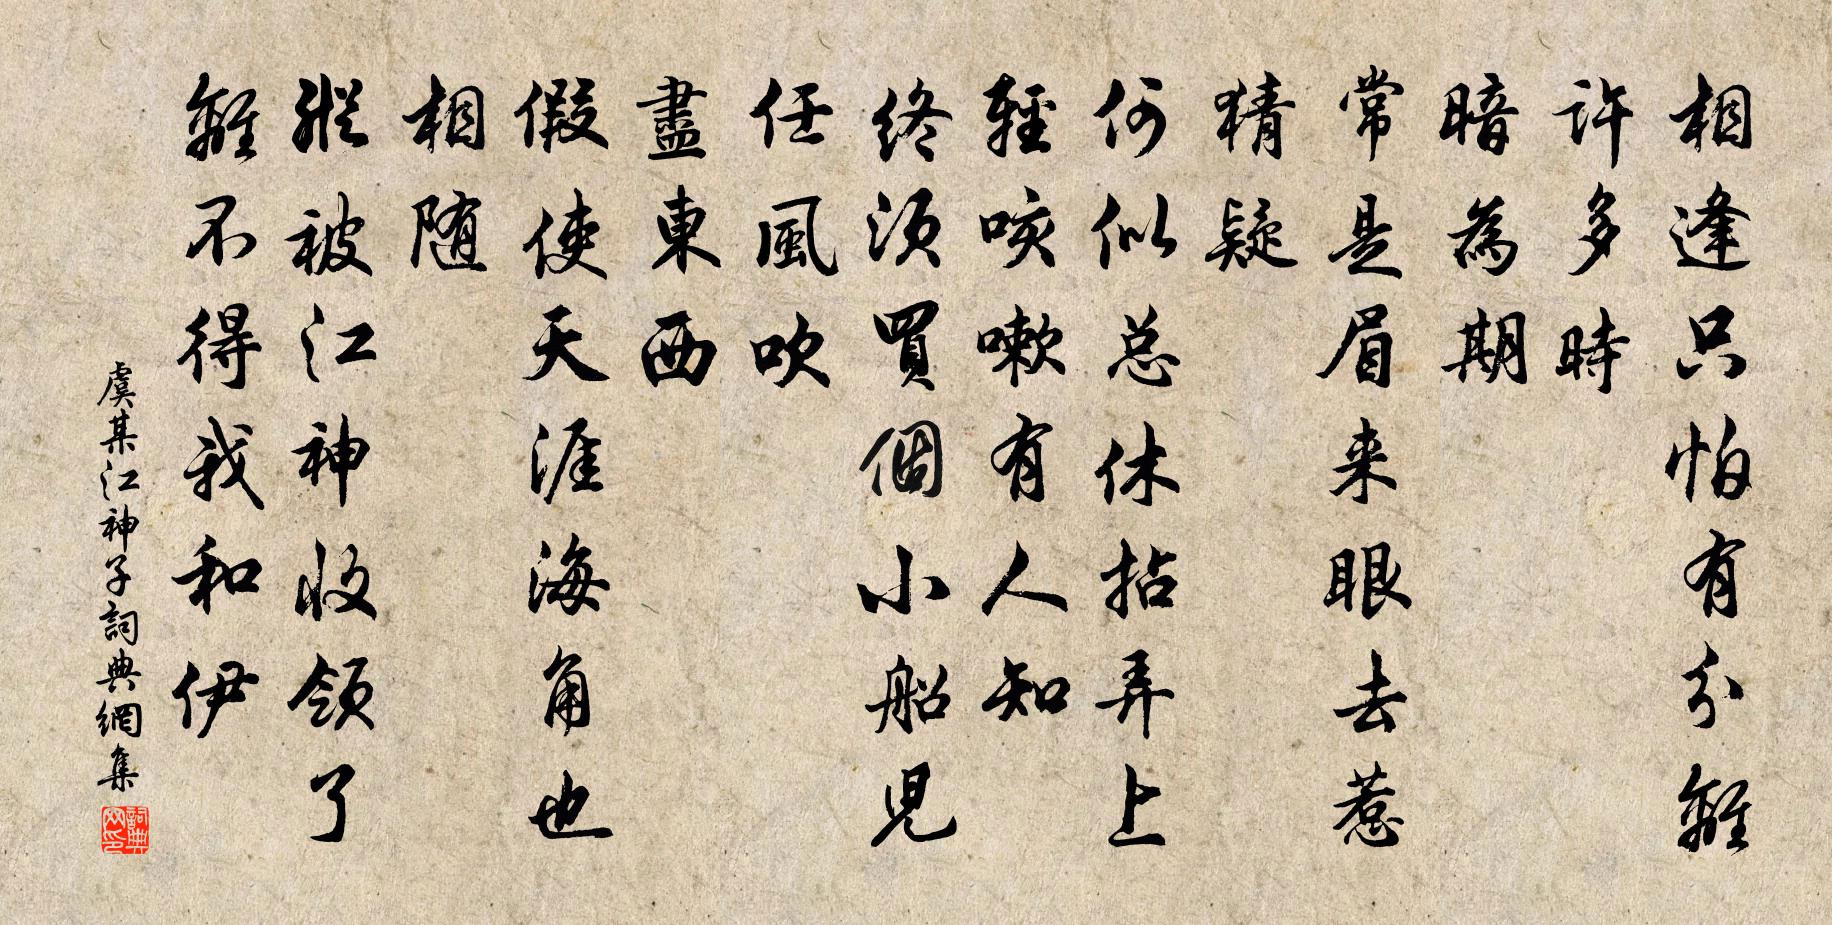 相逢只怕有分離
許多時
暗為期
常是眉来眼去惹
猜疑
何似总休拈弄上
輕咳嗽有人知
终须買個小船児
任風吹
盡東西
假使天涯海角也
相随
縱被江神收领了
離不得我和伊
虞某江神子詞典網集
詞典网印